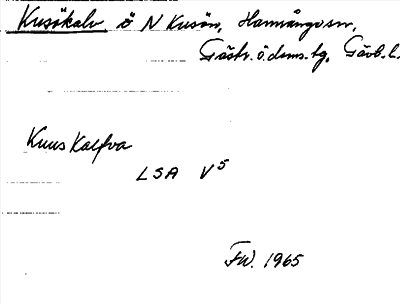 Kusökalv ö N Kusön, Hamrångesn,
Gästr. ö. doms.tg, Gävlb.l.
Kuus Kalfva
LSA V5
FW. 1965